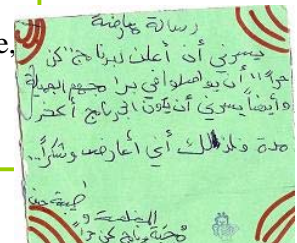 رسالة معارضة
يسرني أن أعلن لبرنامج "كن
حراً" أن يواصلوا في برامجهم الجميلة
وأيضاً يسرني أن يكون البرنامج أكثر
مدة فلذلك أني أعارض وشكراً..
e,